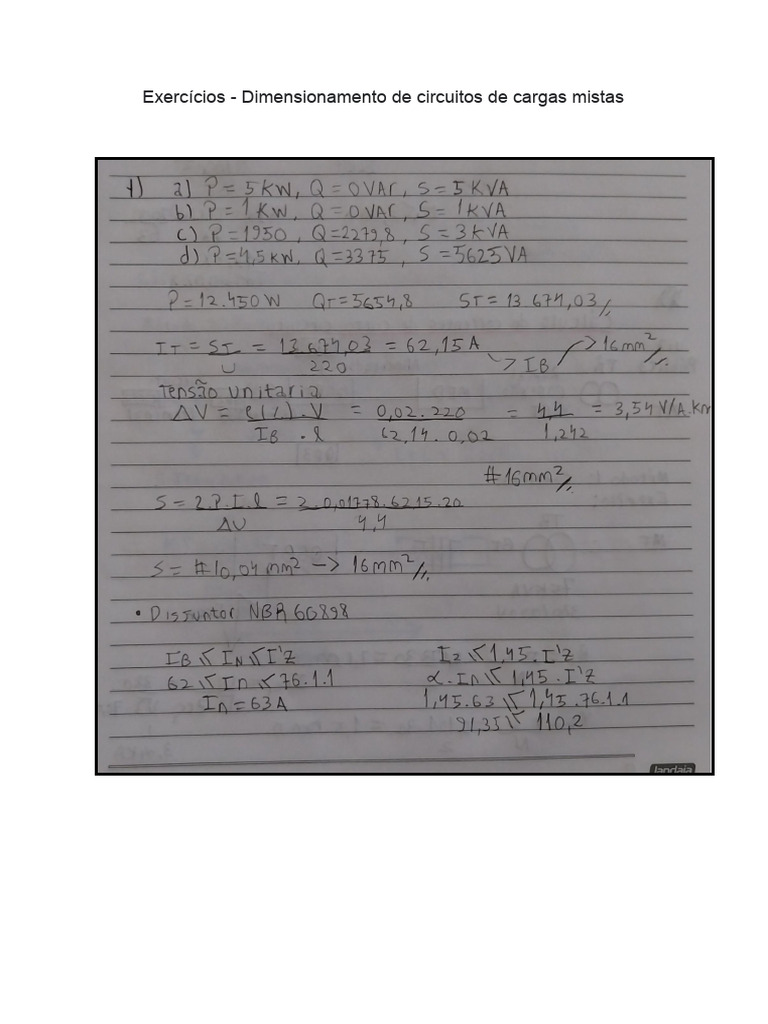 Exercícios - Dimensionamento de circuitos de cargas mistas
1) a) P = 5 KW, Q = 0 VAr, S = 5 KVA
b) P = 1 KW, Q = 0 VAr, S = 1 KVA
c) P = 1950, Q = 2279,8, S = 3 KVA
d) P = 4,5 KW, Q = 3375, S = 5625 VA
P = 12.450 W QT = 5654,8 ST = 13 674,03 //
IT = ST/U = 13 674,03/220 = 62,15 A -> IB -> 16 mm² //
Tensão Unitaria
ΔV = e(%).V/IB . l = 0,02.220/62,14.0,02 = 4,4/1,242 = 3,54 V/A.Km
#16mm² //
S = 2.P.I.l/ΔU = 2.0,01778.6215.20/4,4
S = #10,04 mm² -> 16mm² //
• Disjuntor NBR 60898
IB ≤ IN ≤ I'Z I2 ≤ 1,45.I'Z
62 ≤ In ≤ 76.1.1 α.In ≤ 1,45.I'Z
In = 63A 1,45.63 ≤ 1,45.76.1.1
91,35 ≤ 110,2
jandaia